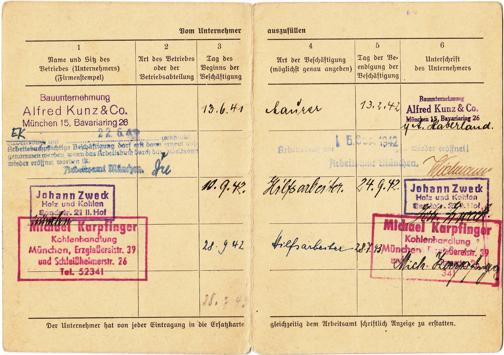 Vom Unternehmer auszufüllen
1 2 3 4 5 6
Name und Sitz des Betriebes (Unternehmers) (Firmenstempel)
Art des Betriebes oder der Betriebsabteilung
Tag des Beginns der Beschäftigung
Art der Beschäftigung (möglichst genau angeben)
Tag der Beendigung der Beschäftigung
Unterschrift des Unternehmers
Bauunternehmung
Alfred Kunz & Co.
München 15, Bavariaring 26
13.6.41
Maurer
13.2.42
Bauunternehmung
Alfred Kunz & Co.
München 15, Bavariaring 26
EK
22.6.
Arbeitsamt München.
1942
Arbeitsamt München.
Johann Zweck
Holz und Kohlen
II. Hof
10.9.42.
Hilfsarbeiter
24.9.42.
Johann Zweck
Holz und Kohlen
Michael Karpfinger
Kohlenhandlung
München, Erzgießereistr. 39
und Schleißheimerstr. 26
Tel. 52341
28.9.42
Hilfsarbeiter
Michael Karpfinger
Kohlenhandlung
München, 39
Mich. Karpfinger
Der Unternehmer hat von jeder Eintragung in die Ersatzkarte gleichzeitig dem Arbeitsamt schriftlich Anzeige zu erstatten.